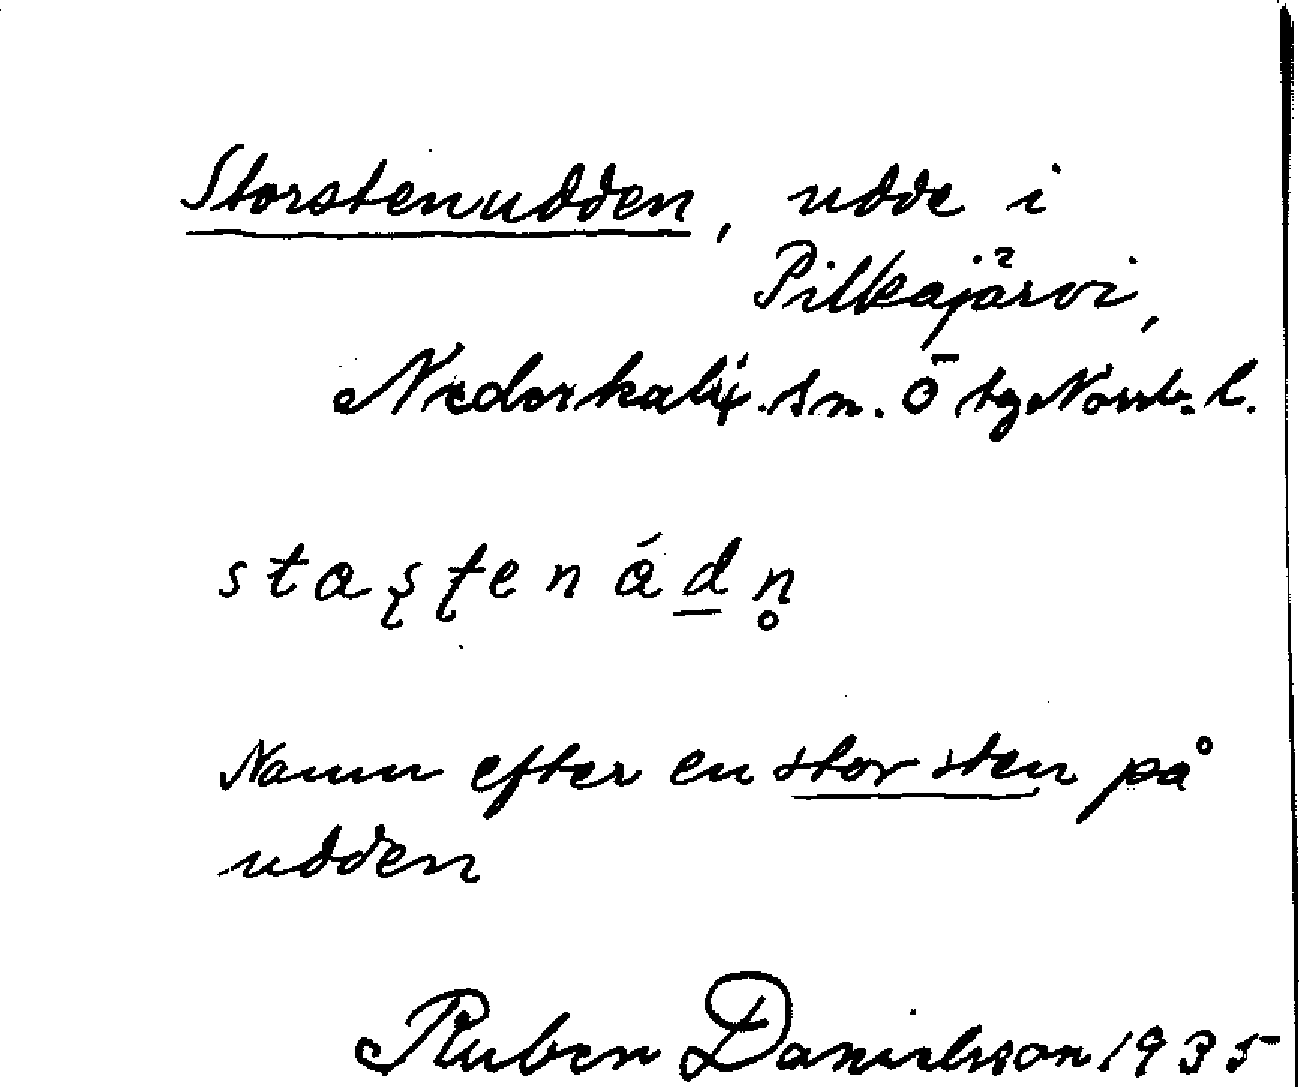 Storstenudden, udde i
Pilkajärvi,
Nederkalix sn. Ö tg Norrb. l.
staʂʈenádn̥
Namn efter en stor sten på
udden
Ruben Danielsson 1935